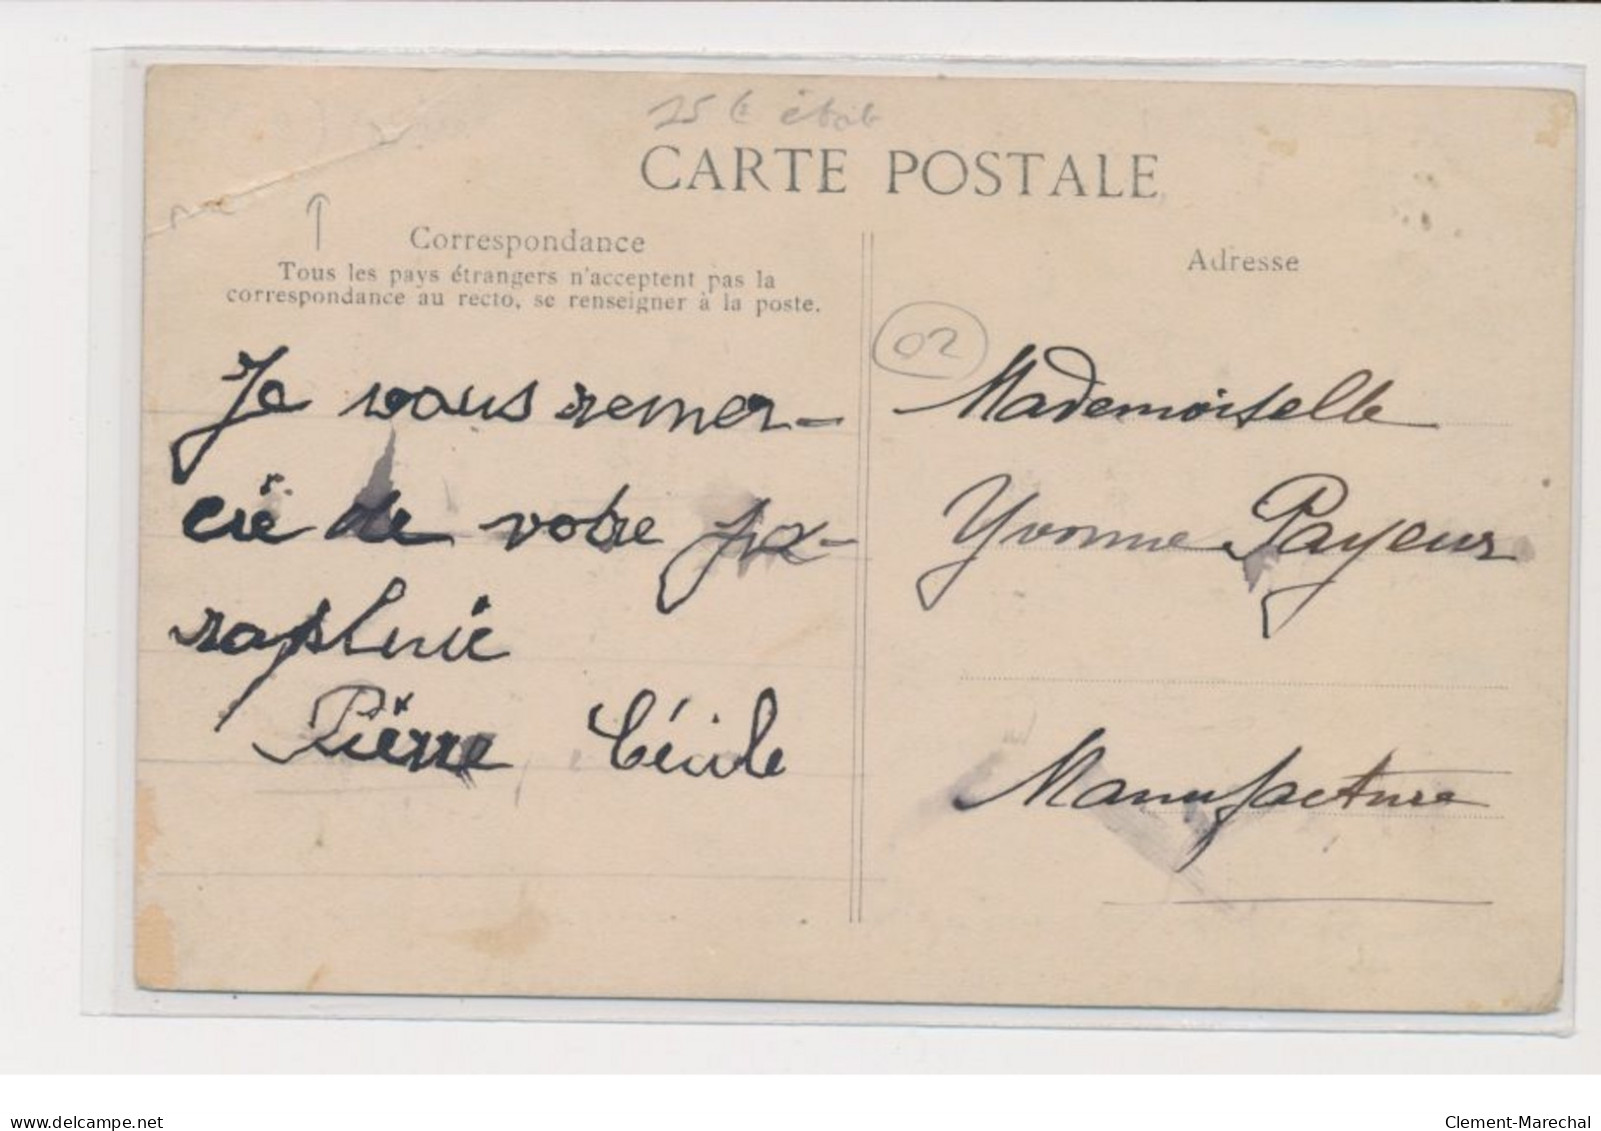 25 € état
CARTE POSTALE
Correspondance
Tous les pays étrangers n'acceptent pas la
correspondance au recto, se renseigner à la poste.
Je vous remer-
cie de votre pa-
rapluie
Pierre Cécile
Adresse
02
Mademoiselle
Yvonne Payeur
Manufacture
www.delcampe.net
Clement-Marechal